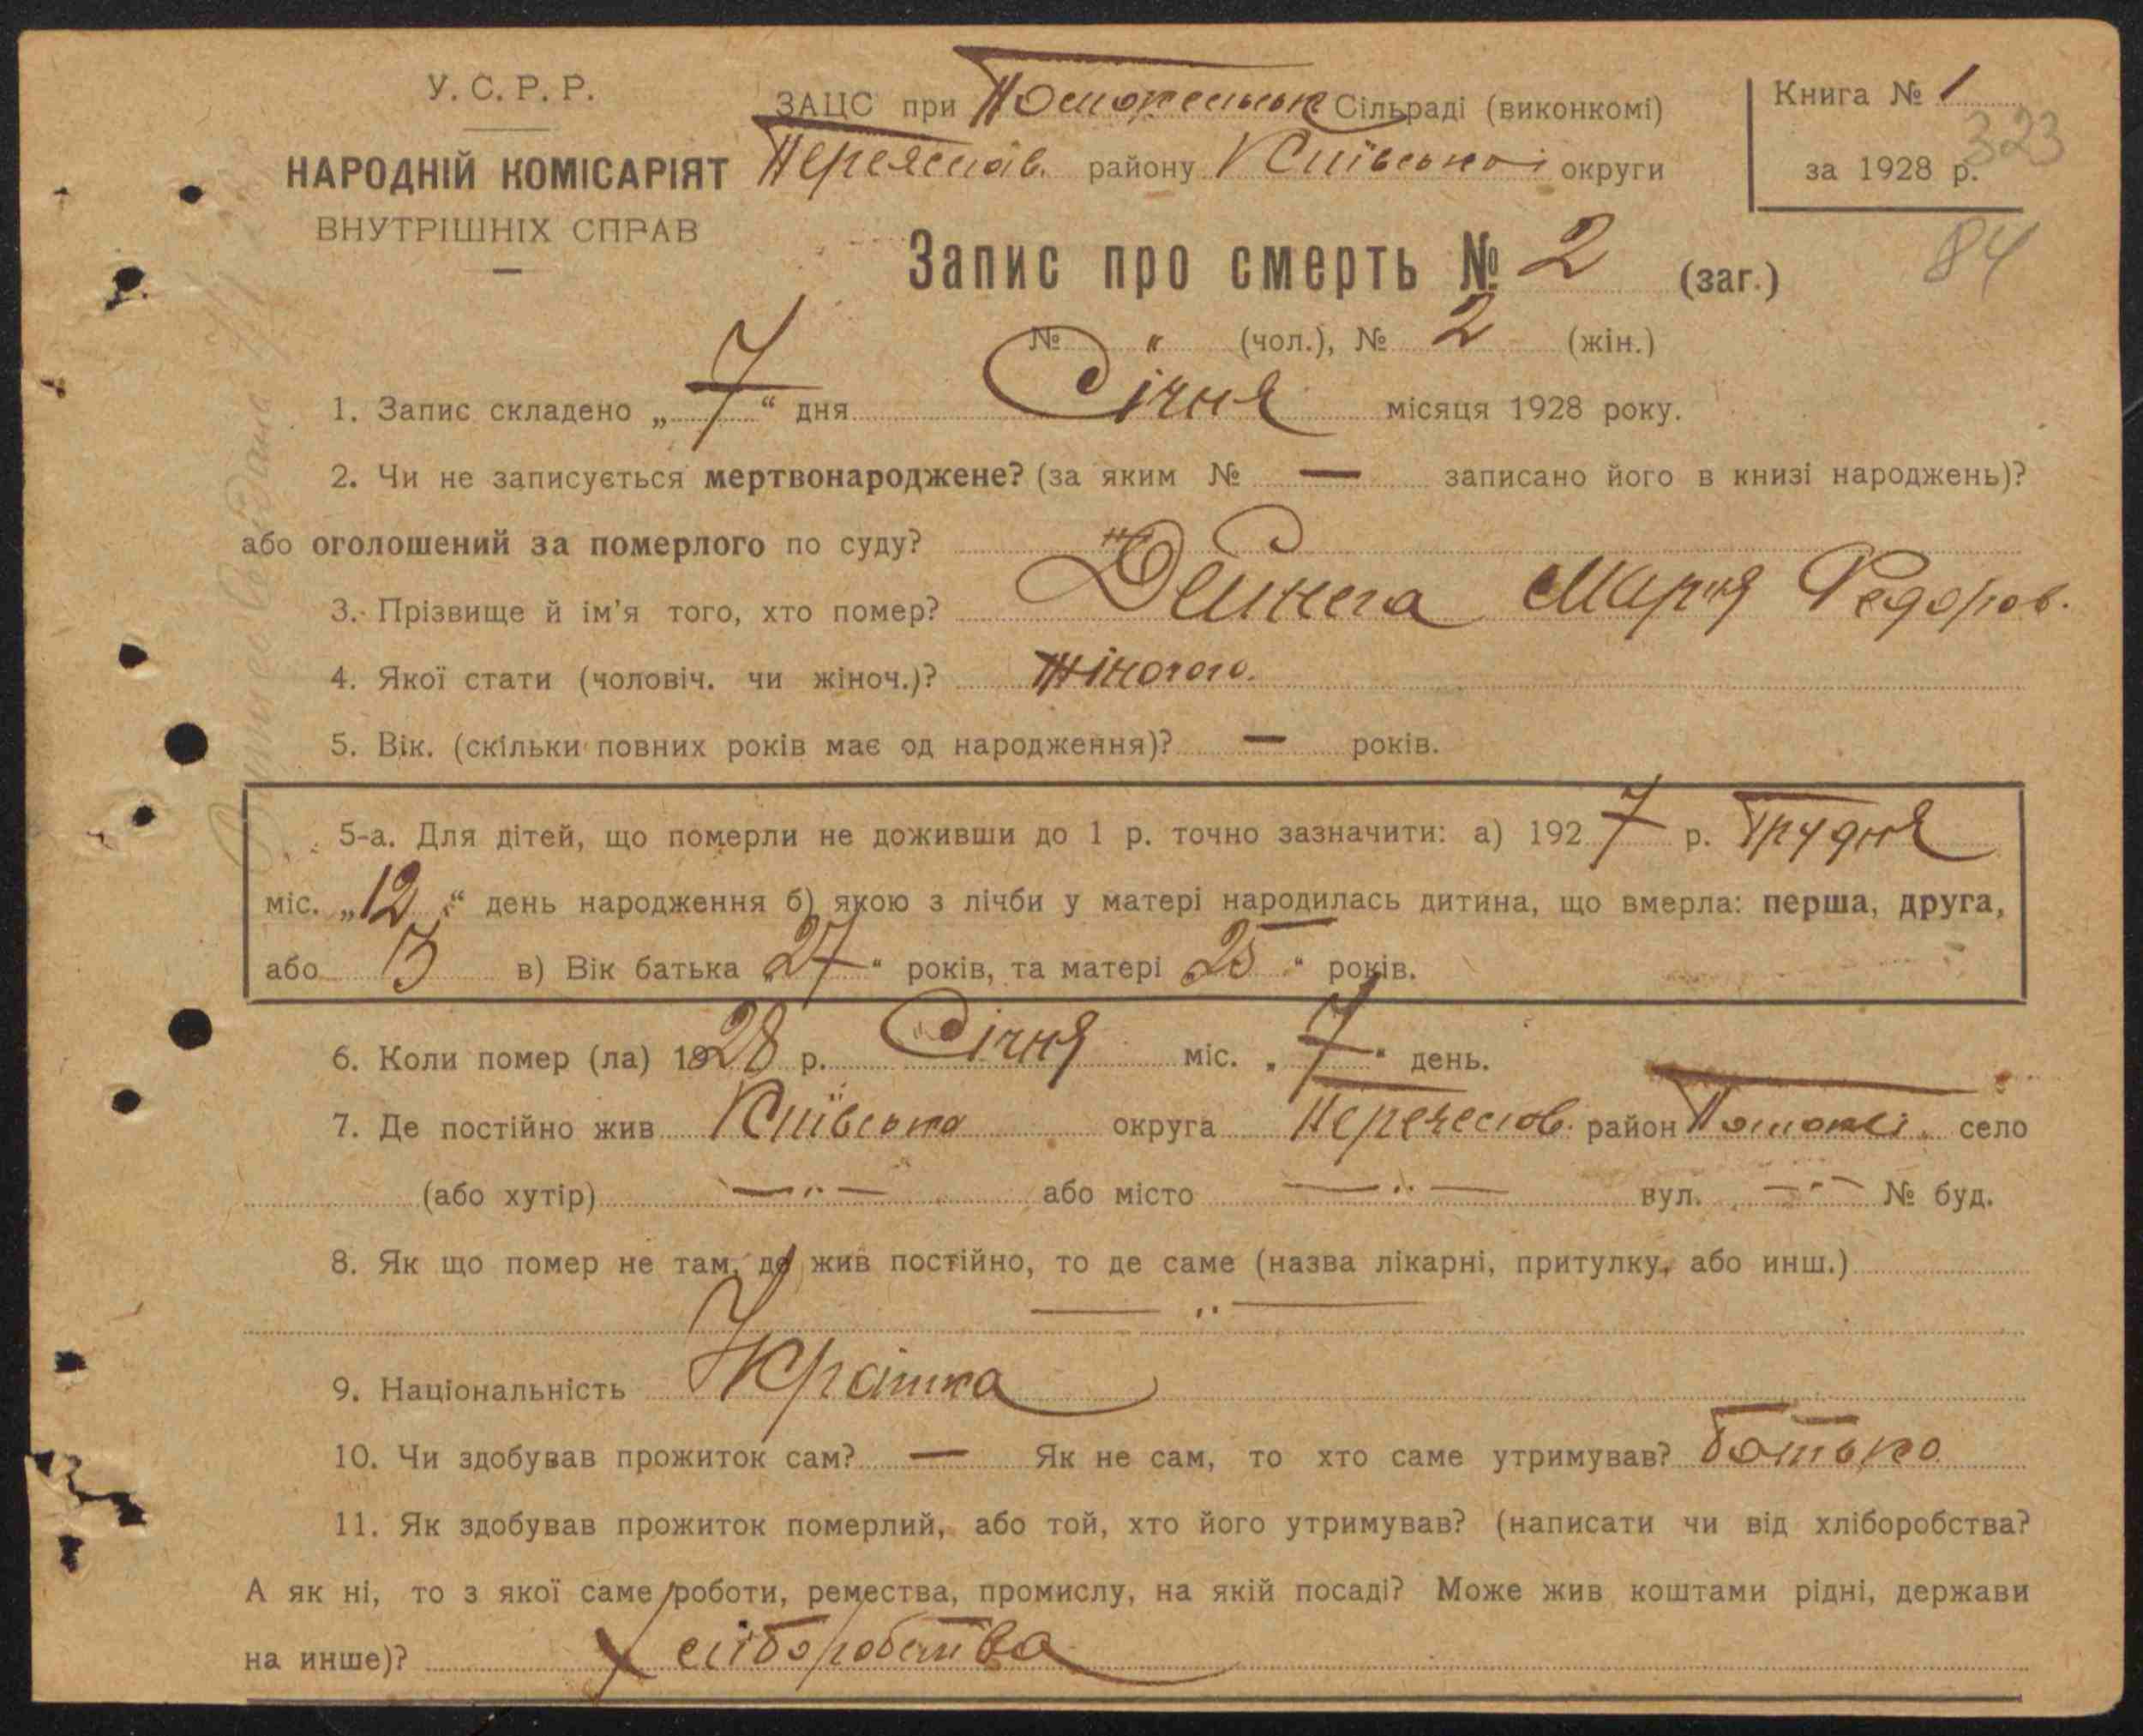 У. С. Р. Р.
НАРОДНІЙ КОМІСАРІЯТ
ВНУТРІШНІХ СПРАВ
ЗАЦС при Сільраді (виконкомі)
Переяслав. району Київської округи
Книга № 1
323
за 1928 р.
84
Запис про смерть № 2 (заг.)
№ " (чол.), № 2 (жін.)
1. Запис складено „7“ дня Січня місяця 1928 року.
2. Чи не записується мертвонароджене? (за яким № — записано його в книзі народжень)?
або оголошений за померлого по суду?
3. Прізвище й ім'я того, хто помер? Дейнега Мария Федоров.
4. Якої стати (чоловіч. чи жіноч.)? Жіночого.
5. Вік. (скільки повних років має од народження)? — років.
5-а. Для дітей, що померли не доживши до 1 р. точно зазначити: а) 1927 р. Грудня
міс. „12“ день народження б) якою з лічби у матері народилась дитина, що вмерла: перша, друга,
або 3 в) Вік батька „27“ років, та матері „25“ років.
6. Коли помер (ла) 1928 р. Січня міс. „7“ день.
7. Де постійно жив Київська округа район село
(або хутір) — " — або місто — " — вул. — " — № буд.
8. Як що помер не там, де жив постійно, то де саме (назва лікарні, притулку, або инш.)
— " —
9. Національність Украінка
10. Чи здобував прожиток сам? — Як не сам, то хто саме утримував? батько
11. Як здобував прожиток померлий, або той, хто його утримував? (написати чи від хліборобства?
А як ні, то з якої саме роботи, ремества, промислу, на якій посаді? Може жив коштами рідні, держави
на инше)? Хліборобства